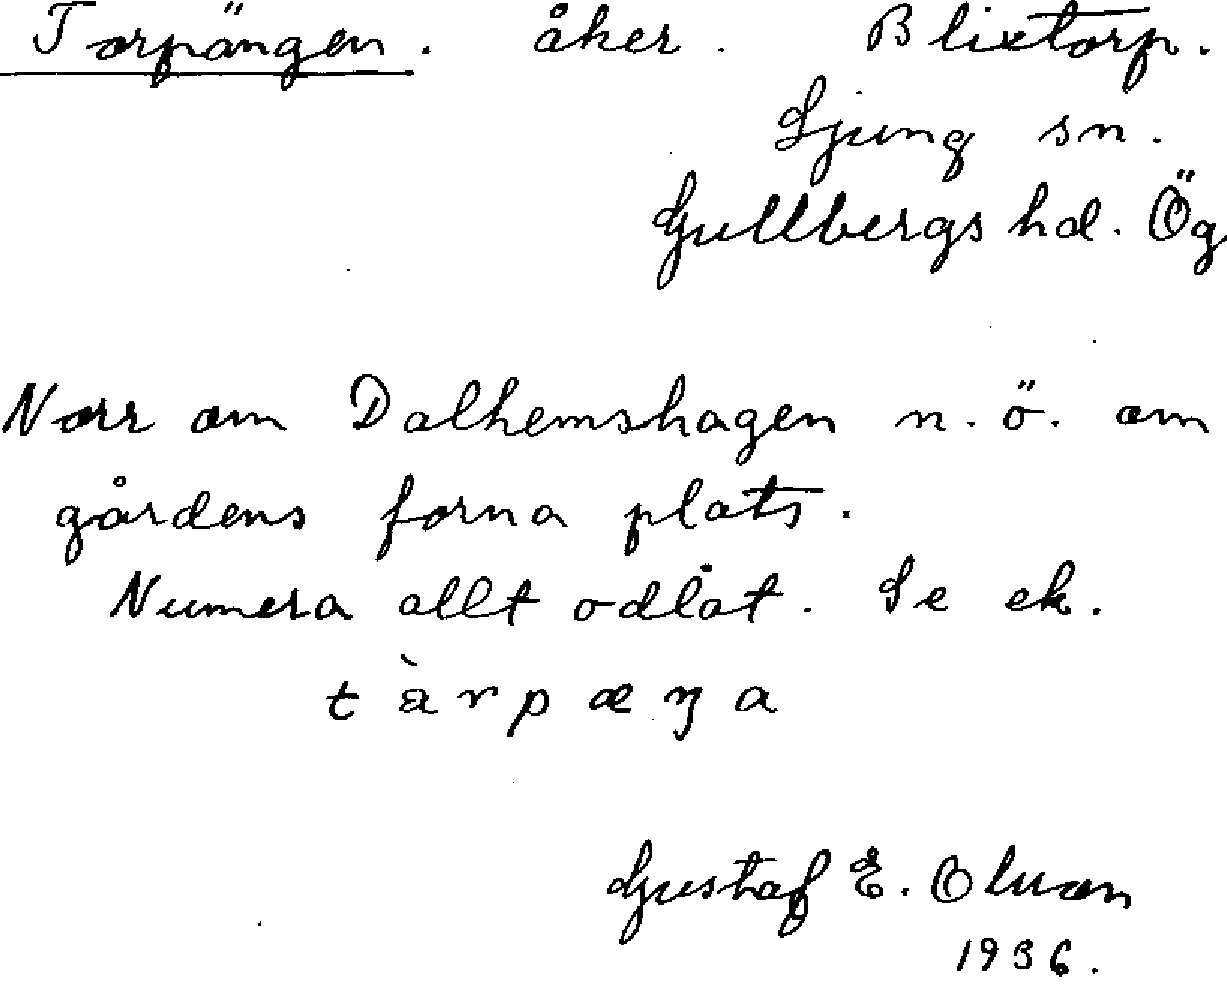 Torpängen. åker. Blixtorp.
Ljung sn.
Gullbergs hd. Ög
Norr om Dalhemshagen n.ö. om
gårdens forna plats.
Numera allt odlat. Se ek.
t à r p æ ŋ a
Gustaf E. Olson
1936.